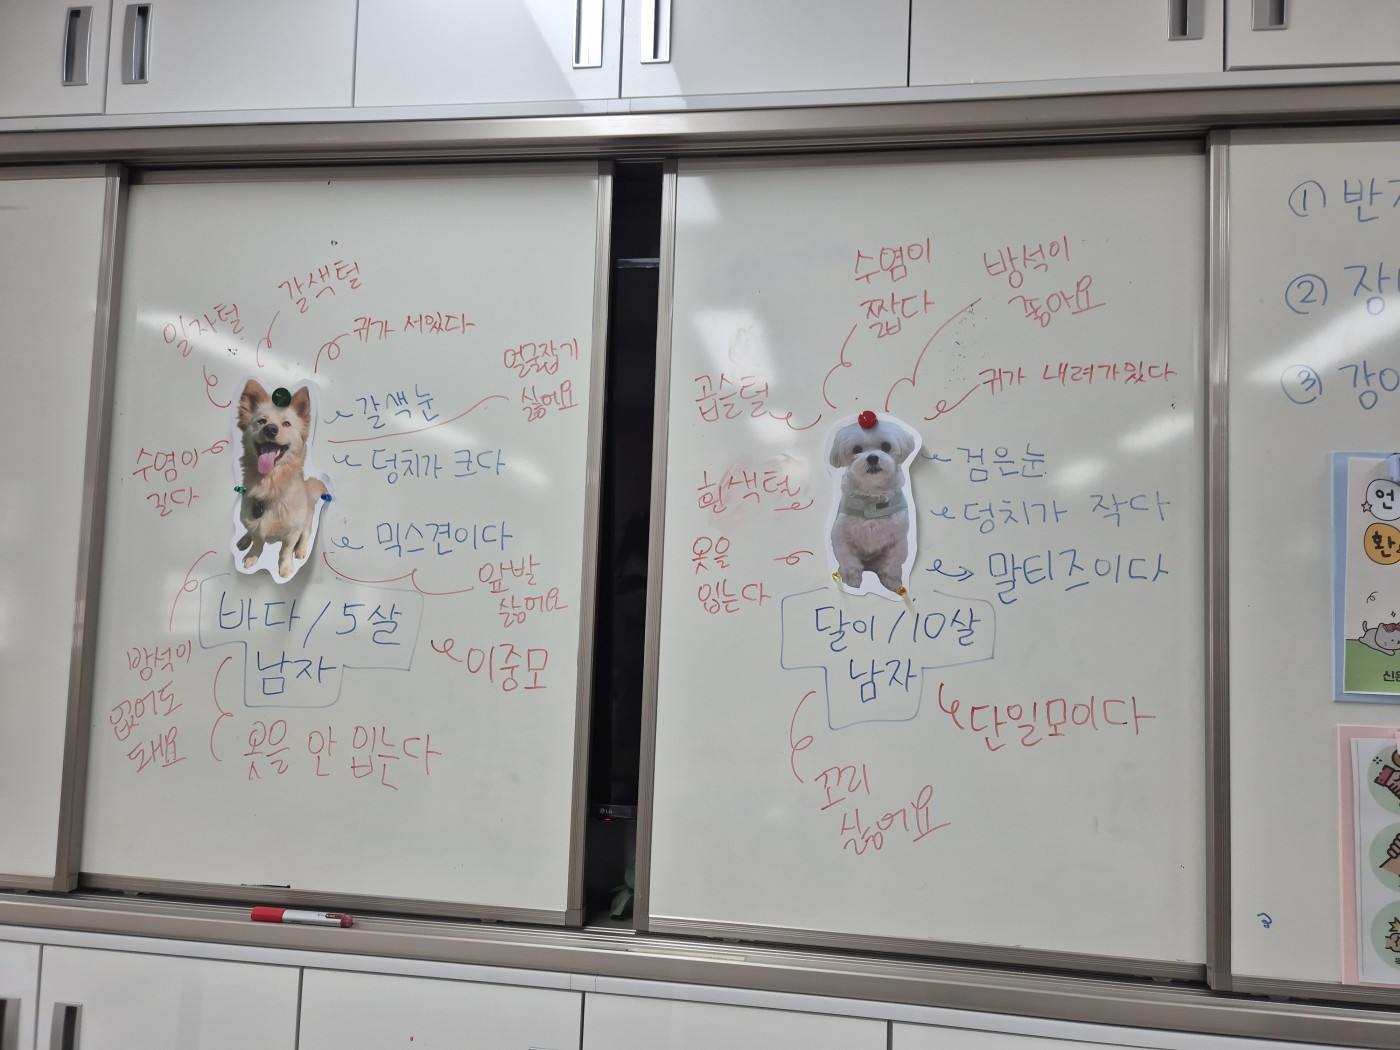 갈색털
일자털
귀가 서있다
얼굴잡기
싫어요
갈색눈
덩치가 크다
수염이
길다
믹스견이다
앞발
싫어요
바다/5살
남자
이중모
방석이
없어도
돼요
옷을 안 입는다
수염이
짧다
방석이
좋아요
곱슬털
귀가 내려가있다
흰색털
검은눈
덩치가 작다
옷을
입는다
말티즈이다
달이/10살
남자
단일모이다
꼬리
싫어요
LG
① 반
② 장
③ 강
언
환